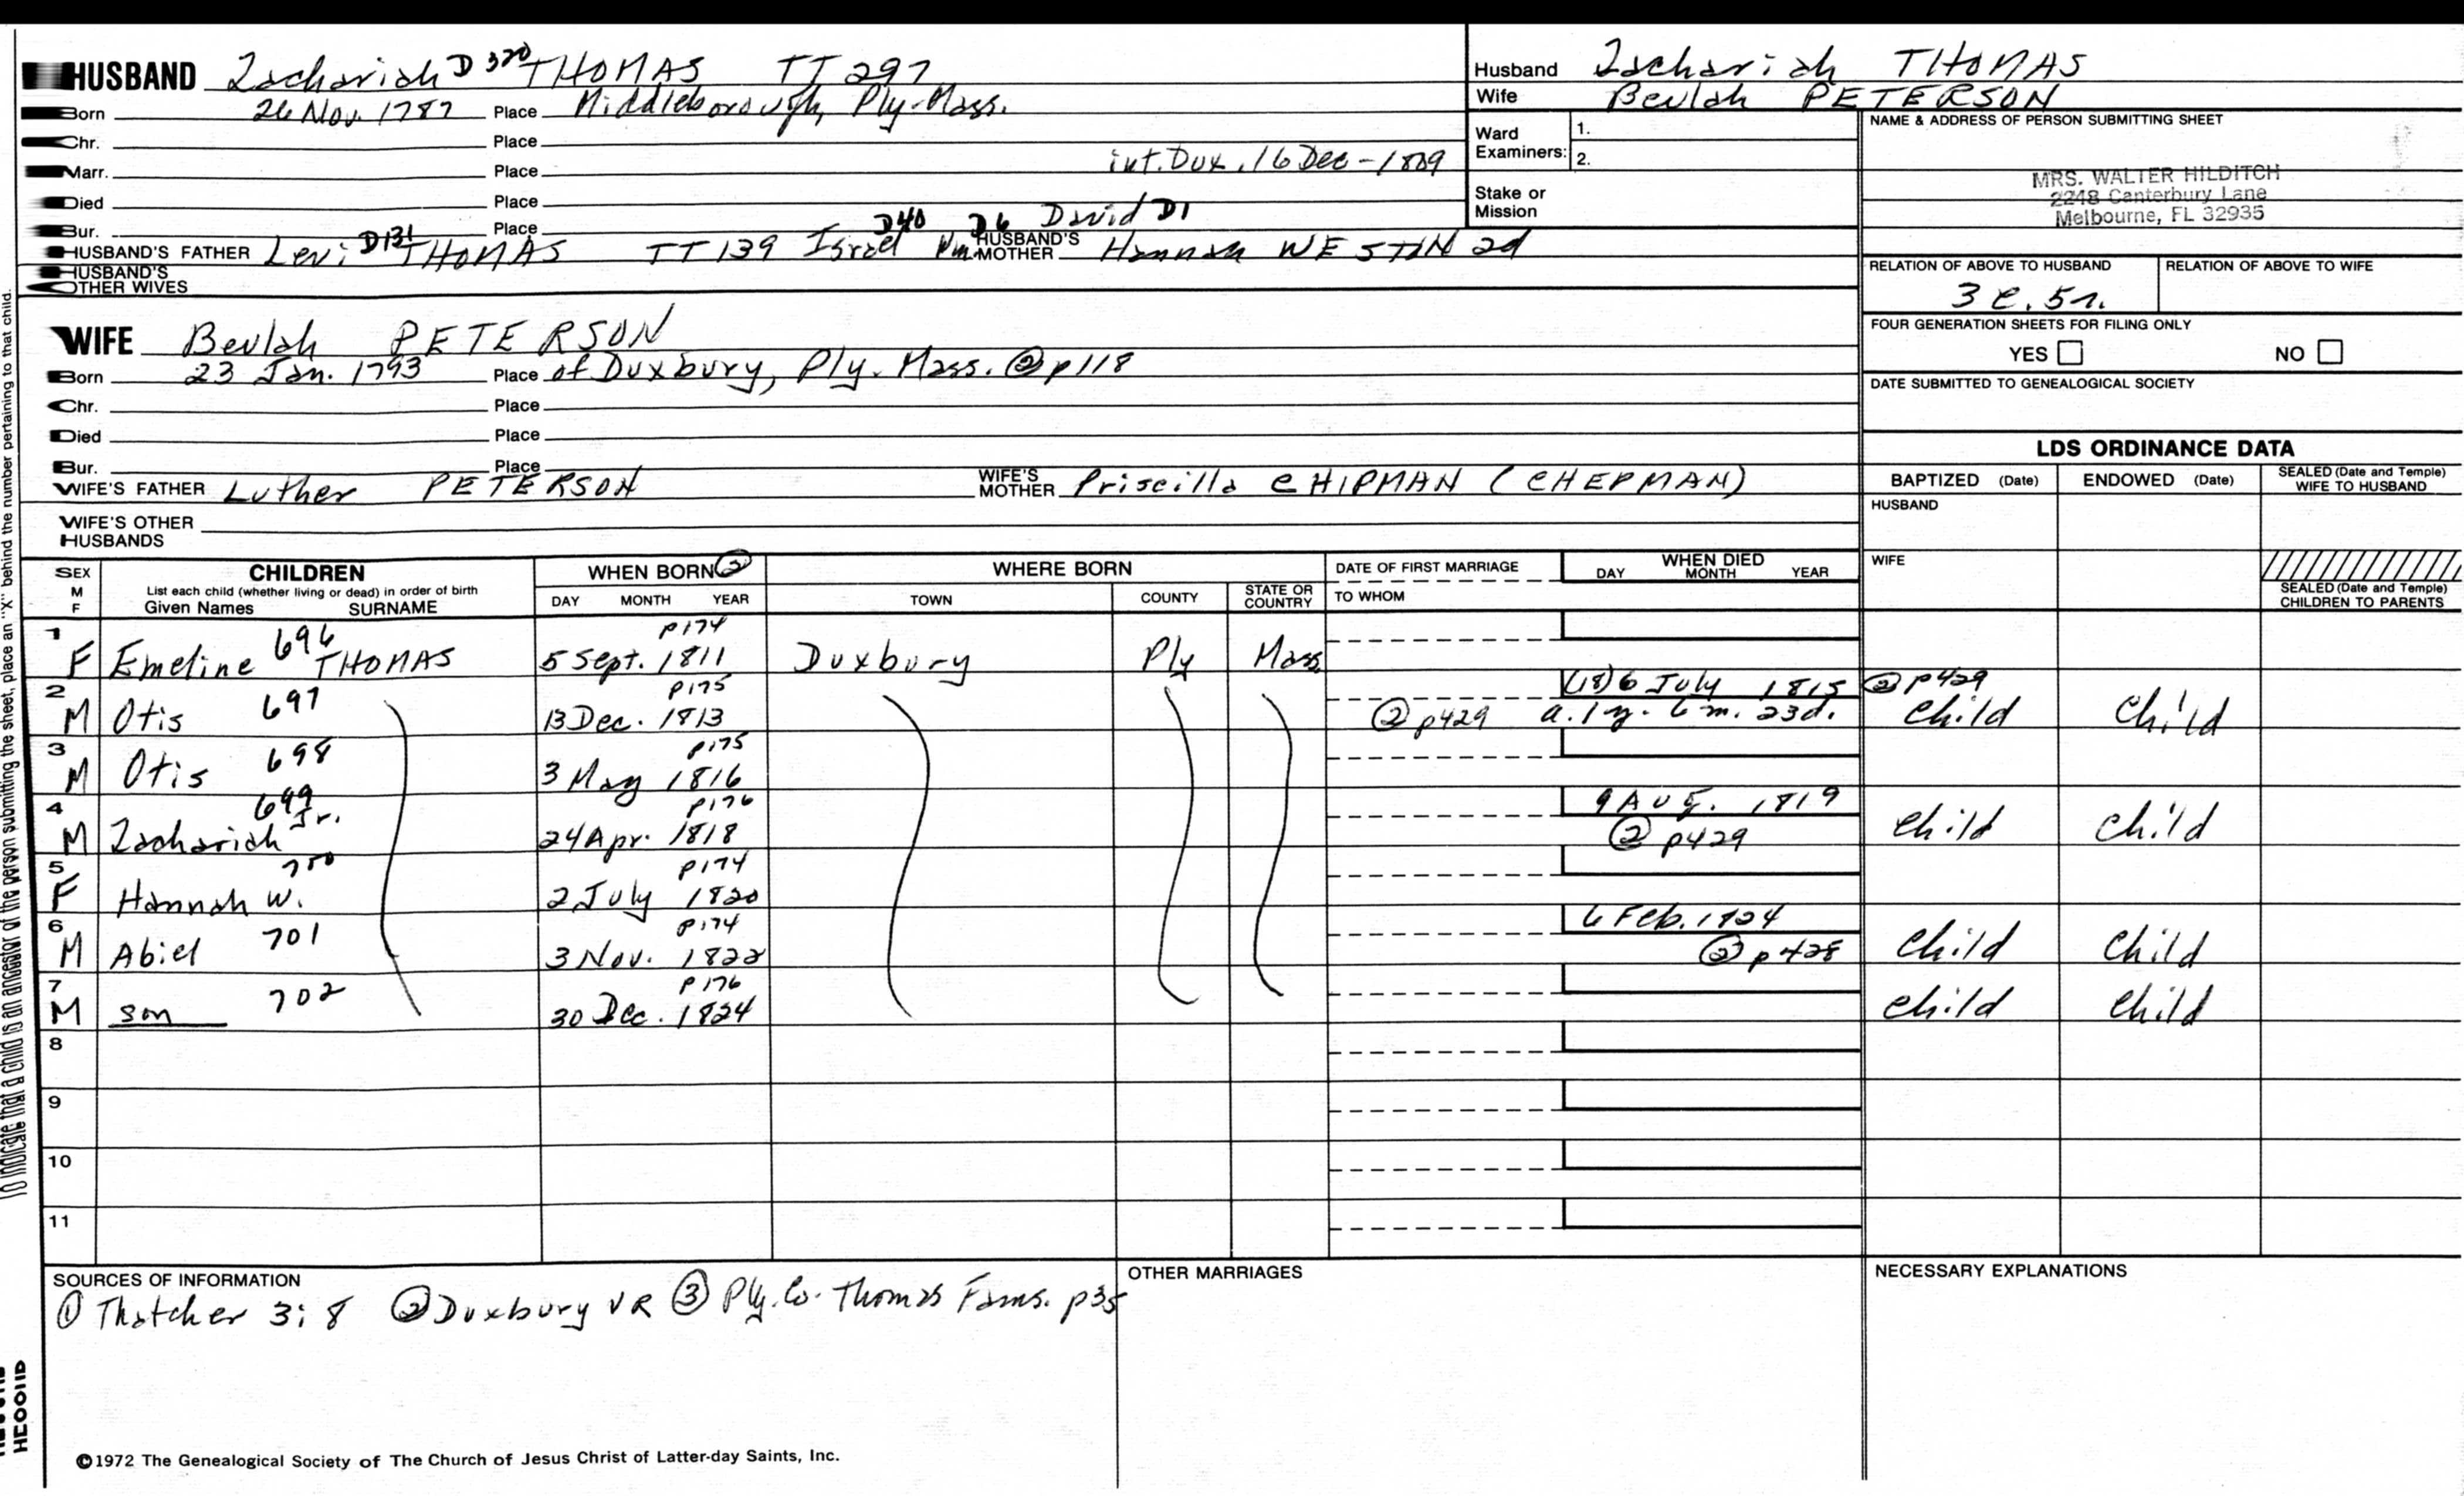 HUSBAND Zachariah D 320 THOMAS TT 297
Born 26 Nov. 1787 Place Middleborough, Ply-Mass.
Chr. Place
Marr. Place int. Dux. 16 Dec-1809
Died Place
Bur. Place
HUSBAND'S FATHER Levi D131 THOMAS TT 139 Israel D40 Wm D6 David D1 HUSBAND'S MOTHER Hannah WESTIN 2d
HUSBAND'S OTHER WIVES
WIFE Beulah PETERSON
Born 23 Jan. 1793 Place of Duxbury, Ply. Mass. ② p118
Chr. Place
Died Place
Bur. Place
WIFE'S FATHER Luther PETERSON WIFE'S MOTHER Priscilla CHIPMAN (CHEPMAN)
WIFE'S OTHER HUSBANDS
Husband Zachariah THOMAS
Wife Beulah PETERSON
Ward Examiners: 1.
2.
Stake or Mission
NAME & ADDRESS OF PERSON SUBMITTING SHEET
MRS. WALTER HILDITCH
2248 Canterbury Lane
Melbourne, FL 32935
RELATION OF ABOVE TO HUSBAND RELATION OF ABOVE TO WIFE
3 c. 5r.
FOUR GENERATION SHEETS FOR FILING ONLY
YES NO
DATE SUBMITTED TO GENEALOGICAL SOCIETY
LDS ORDINANCE DATA
BAPTIZED (Date) ENDOWED (Date) SEALED (Date and Temple) WIFE TO HUSBAND
HUSBAND
WIFE
SEALED (Date and Temple) CHILDREN TO PARENTS
SEX M F CHILDREN List each child (whether living or dead) in order of birth Given Names SURNAME
WHEN BORN ② DAY MONTH YEAR
WHERE BORN TOWN COUNTY STATE OR COUNTRY
DATE OF FIRST MARRIAGE TO WHOM
WHEN DIED DAY MONTH YEAR
1 F Emeline 696 THOMAS 5 Sept. 1811 p174 Duxbury Ply Mass
2 M Otis 697 13 Dec. 1813 p175 (18) 6 July 1815 ② p429 a. 1 y. 6 m. 23 d. ② p429 child child
3 M Otis 698 3 May 1816 p175
4 M Zachariah Jr. 699 24 Apr. 1818 p176 9 Aug. 1819 ② p429 child child
5 F Hannah W. 700 2 July 1820 p174
6 M Abiel 701 3 Nov. 1822 p174 6 Feb. 1824 ② p428 child child
7 M son 702 30 Dec. 1824 p176 child child
8
9
10
11
SOURCES OF INFORMATION
① Thatcher 3:8 ② Duxbury VR ③ Ply. Co. Thomas Fams. p35
OTHER MARRIAGES
NECESSARY EXPLANATIONS
©1972 The Genealogical Society of The Church of Jesus Christ of Latter-day Saints, Inc.
To indicate that a child is an ancestor of the person submitting the sheet, place an "X" behind the number pertaining to that child.